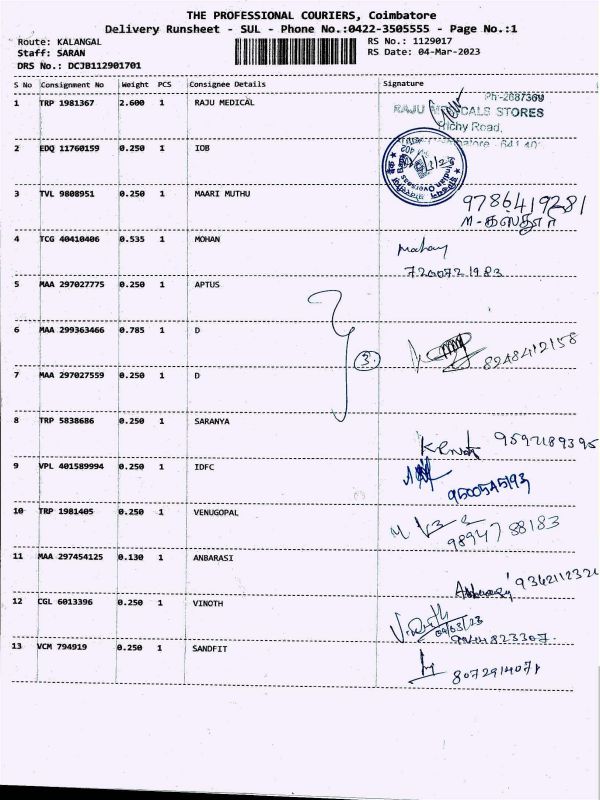 THE PROFESSIONAL COURIERS, Coimbatore
Delivery Runsheet - SUL - Phone No.:0422-3505555 - Page No.:1
Route: KALANGAL
RS No.: 1129017
Staff: SARAN
RS Date: 04-Mar-2023
DRS No.: DCJB112901701
S No Consignment No Weight PCS Consignee Details Signature
1 TRP 1981367 2.600 1 RAJU MEDICAL
Ph-2687369
STORES
Richy Road,
2 EDQ 11760159 0.250 1 IOB
3 TVL 9808951 0.250 1 MAARI MUTHU
9786419281
4 TCG 40410406 0.535 1 MOHAN
Mohan
7200721983
5 MAA 297027775 0.250 1 APTUS
6 MAA 299363466 0.785 1 D
3
8248412158
7 MAA 297027559 0.250 1 D
8 TRP 5838686 0.250 1 SARANYA
9597189395
9 VPL 401589994 0.250 1 IDFC
9500545193
10 TRP 1981405 0.250 1 VENUGOPAL
98947 88183
11 MAA 297454125 0.130 1 ANBARASI
9362112321
12 CGL 6013396 0.250 1 VINOTH
Vinoth
04/03/23
13 VCM 794919 0.250 1 SANDFIT
8072914071